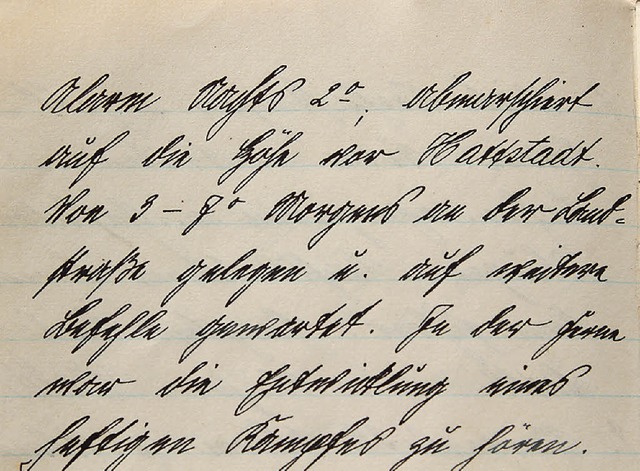 Alarm Nachts 2º, abmarschiert
auf die Höhe vor Hattstadt.
Von 3 – 7º Morgens an der Land-
straße gelegen u. auf weitere
Befehle gewartet. In der Ferne
war die Entwicklung eines
heftigen Kampfes zu hören.